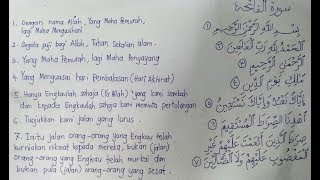 1. Dengan nama Allah, Yang Maha Pemurah,
lagi Maha Mengasihani
2. Segala puji bagi Allah, Tuhan Sekalian alam.
3. Yang Maha Pemurah, lagi Maha Penyayang
4. Yang Menguasai hari Pembalasan (Hari Akhirat)
5. Hanya Engkaulah sahaja (Ya Allah) Yang kami sembah
dan kepada Engkaulah sahaja kami meminta pertolongan
6. Tunjukkan kami jalan yang lurus.
7. Iaitu jalan orang-orang yang Engkau telah
kurniakan nikmat kepada mereka, bukan (jalan)
orang-orang yang Engkau telah murkai dan
bukan pula (jalan) orang-orang yang sesat.
سورة الفاتحة
بِسْمِ اللَّهِ الرَّحْمَٰنِ الرَّحِيمِ
الْحَمْدُ لِلَّهِ رَبِّ الْعَالَمِينَ
الرَّحْمَٰنِ الرَّحِيمِ
مَالِكِ يَوْمِ الدِّينِ
إِيَّاكَ نَعْبُدُ وَإِيَّاكَ نَسْتَعِينُ
اهْدِنَا الصِّرَاطَ الْمُسْتَقِيمَ
صِرَاطَ الَّذِينَ أَنْعَمْتَ عَلَيْهِمْ غَيْرِ
الْمَغْضُوبِ عَلَيْهِمْ وَلَا الضَّالِّينَ